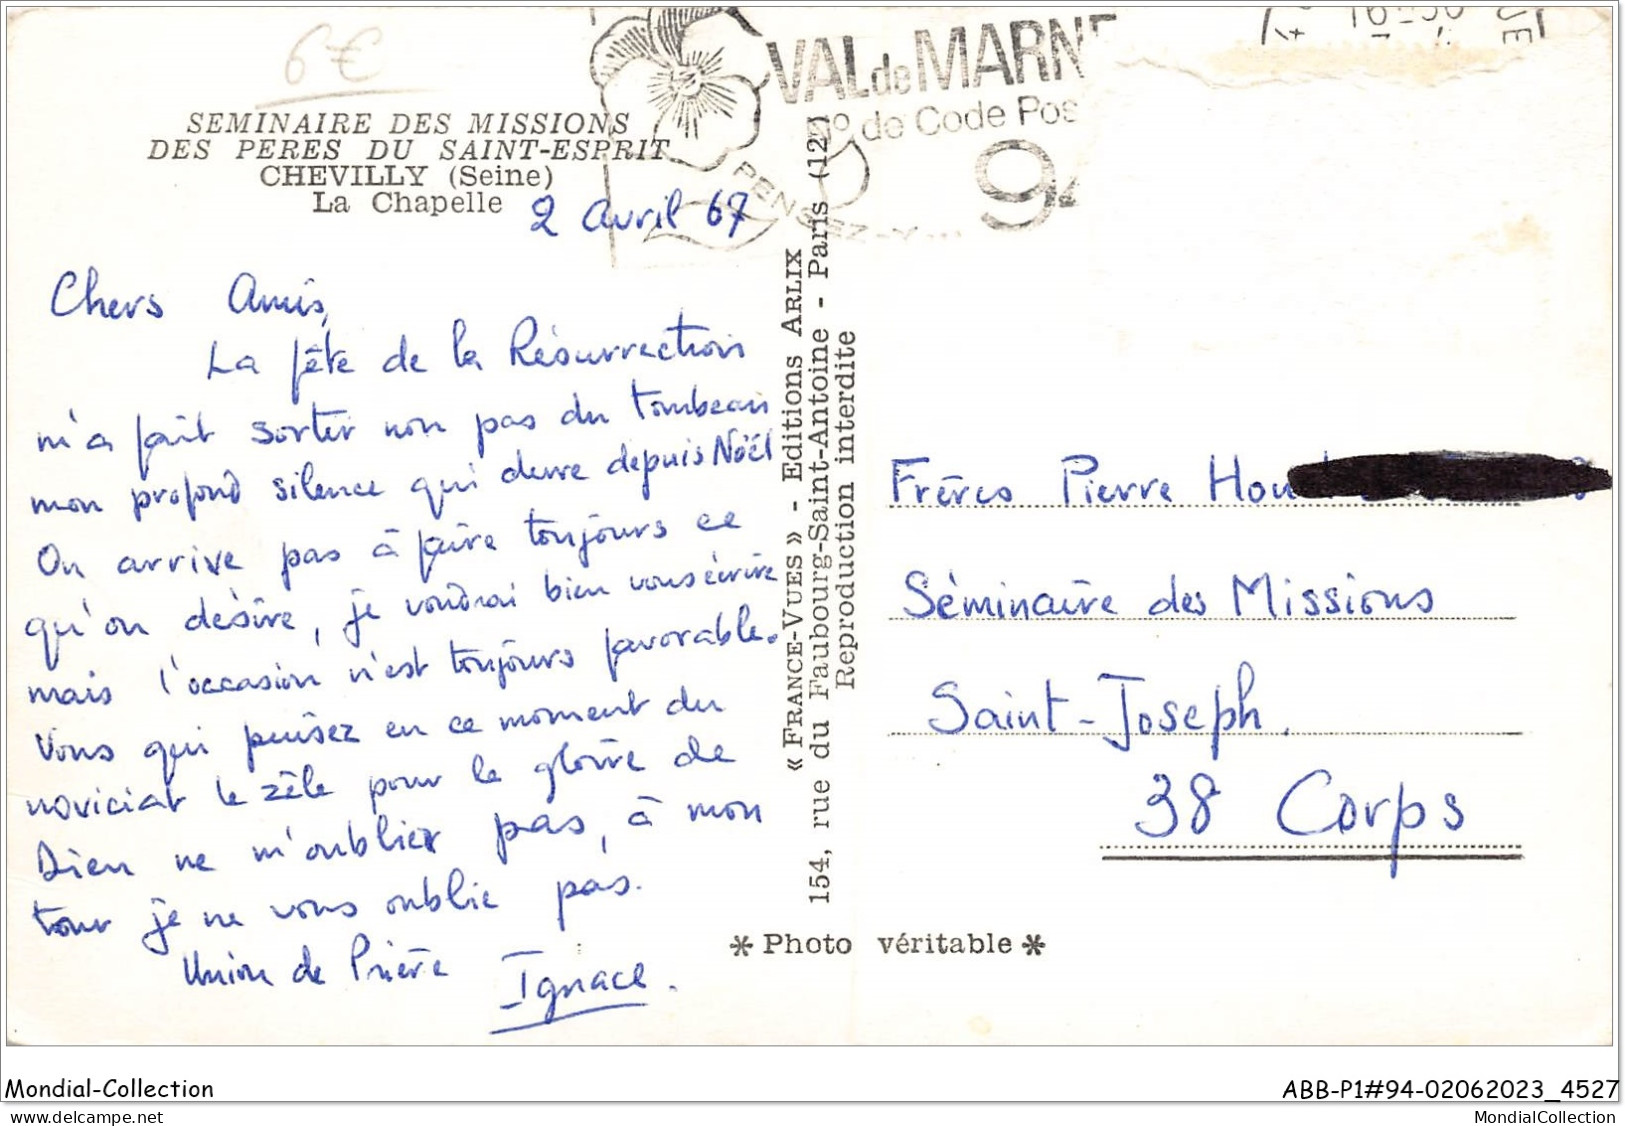 6€
VAL de MARNE
N° de Code Pos
94
PENSEZ-Y...
SEMINAIRE DES MISSIONS
DES PERES DU SAINT-ESPRIT
CHEVILLY (Seine)
La Chapelle
2 avril 67
Chers Amis,
La fête de la Résurrection
m'a fait sortir non pas du tombeau
mon profond silence qui dure depuis Noël
On arrive pas à faire toujours ce
qu'on désire, je voudrai bien vous écrire
mais l'occasion n'est toujours favorable.
Vous qui puisez en ce moment du
noviciat le zèle pour la gloire de
Dieu ne m'oublier pas, à mon
tour je ne vous oublie pas.
Union de Prière
Ignace.
« FRANCE-VUES » - Editions ARLIX
154, rue du Faubourg-Saint-Antoine - Paris (12e)
Reproduction interdite
* Photo véritable *
Frères Pierre Hou
Séminaire des Missions
Saint-Joseph.
38 Corps
Mondial-Collection
ABB-P1#94-02062023_4527
MondialCollection.com
MondialCollection